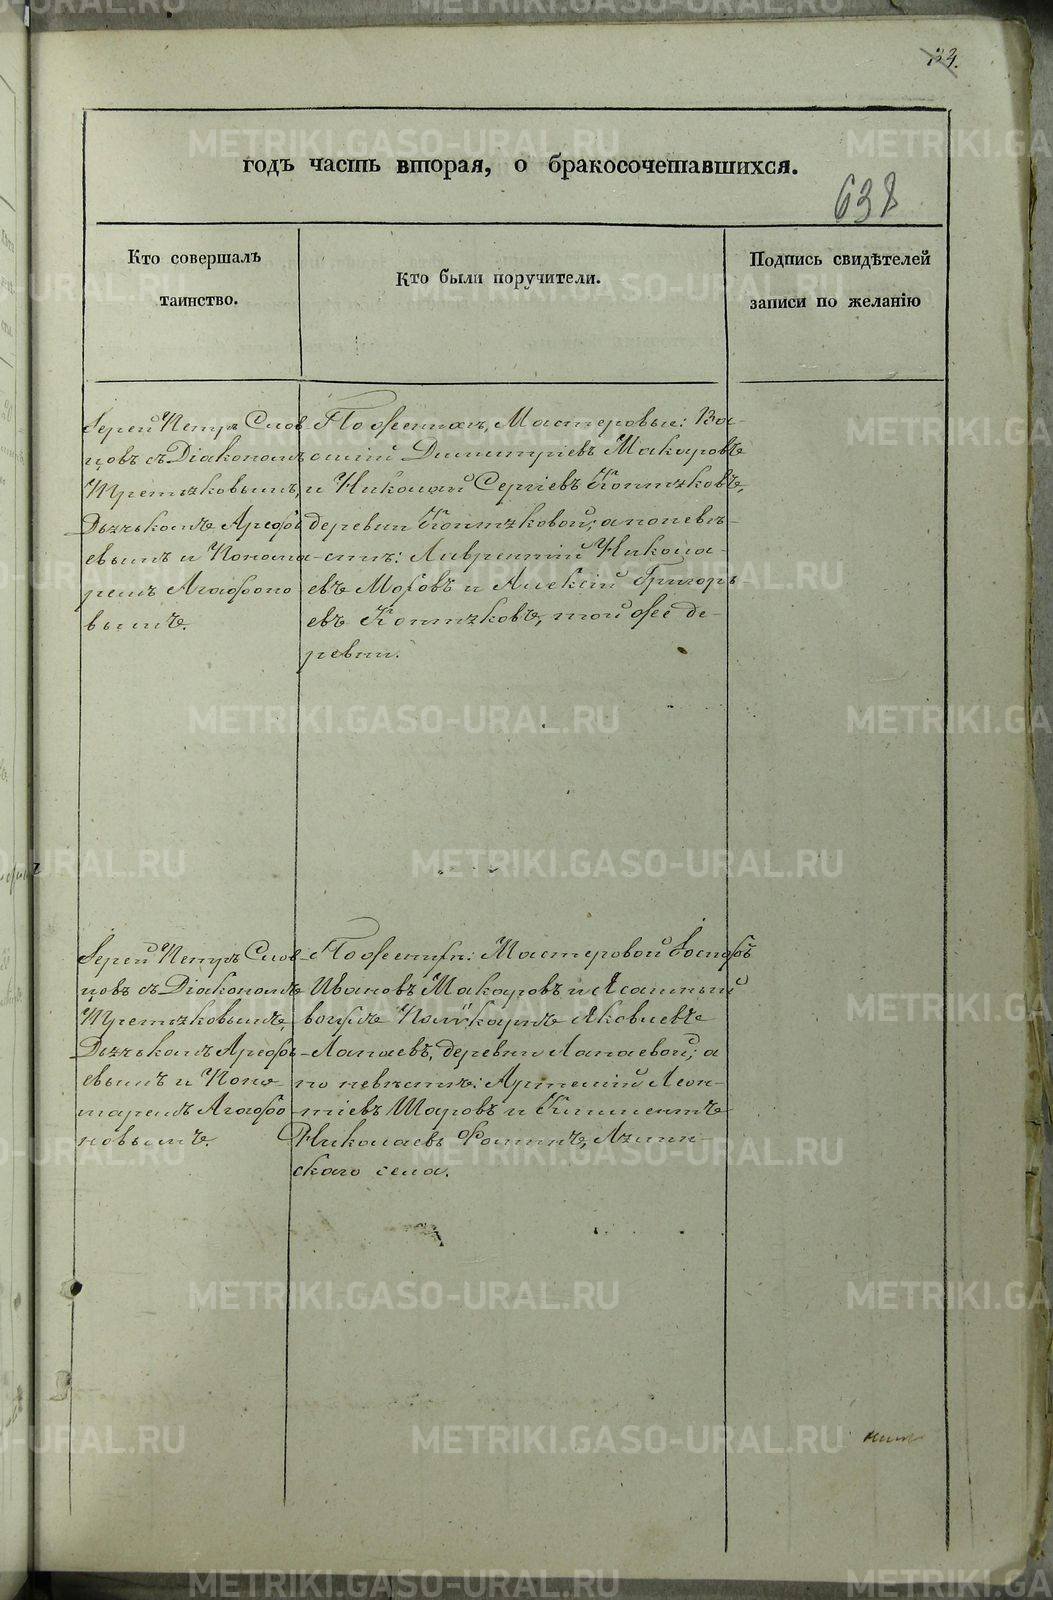 134.
годъ часть вторая, о бракосочетавшихся.
638
Кто совершалъ
таинство.
Кто были поручители.
Подпись свидѣтелей
записи по желанію
Іерей Петръ Слов
цовъ съ Діакономъ
Третьяковымъ,
Дьячькомъ Арефь
евымъ и Понома
ремъ Агафоно
вымъ.
По женихѣ, Мастеровые: Ва-
силій Димитріевъ Макаровъ
и Николай Сергіевъ Коптяковъ,
деревни Коптяковой; а по невѣ-
стѣ: Лаврентій Никола-
евъ Моховъ и Алексій Григорь-
евъ Коптяковъ, той же де-
ревни.
Іерей Петръ Слов-
цовъ съ Діакономъ
Третьяковымъ,
Дьячькомъ Арефь-
евымъ и Поно-
маремъ Агафо
новымъ.
По женихѣ: Мастеровой Іосифъ
Ивановъ Макаровъ и Ясашный
вогулъ Поликарпъ Яковлевъ
Лапаевъ, деревни Лапаевой; а
по невѣстѣ: Артемій Леон-
тіевъ Шаровъ и Климентъ
Николаевъ Фоминъ, Лялин-
скаго села.
METRIKI.GASO-URAL.RU